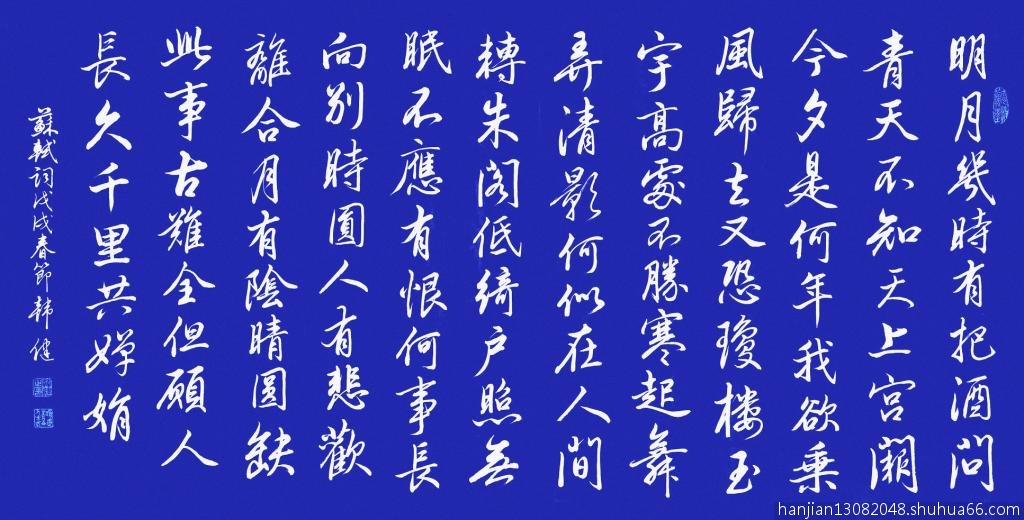 明月幾時有把酒問
青天不知天上宮闕
今夕是何年我欲乘
風歸去又恐瓊樓玉
宇高處不勝寒起舞
弄清影何似在人間
轉朱閣低綺户照無
眠不應有恨何事長
向别時圓人有悲歡
離合月有陰晴圓缺
此事古難全但願人
長久千里共嬋娟
蘇軾詞戊戌春節韩健
hanjian13082048.shuhua66.com